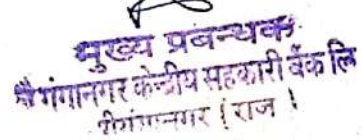 मुख्य प्रबन्धक
गंगानगर केन्द्रीय सहकारी बैंक लि
श्रीगंगानगर (राज)